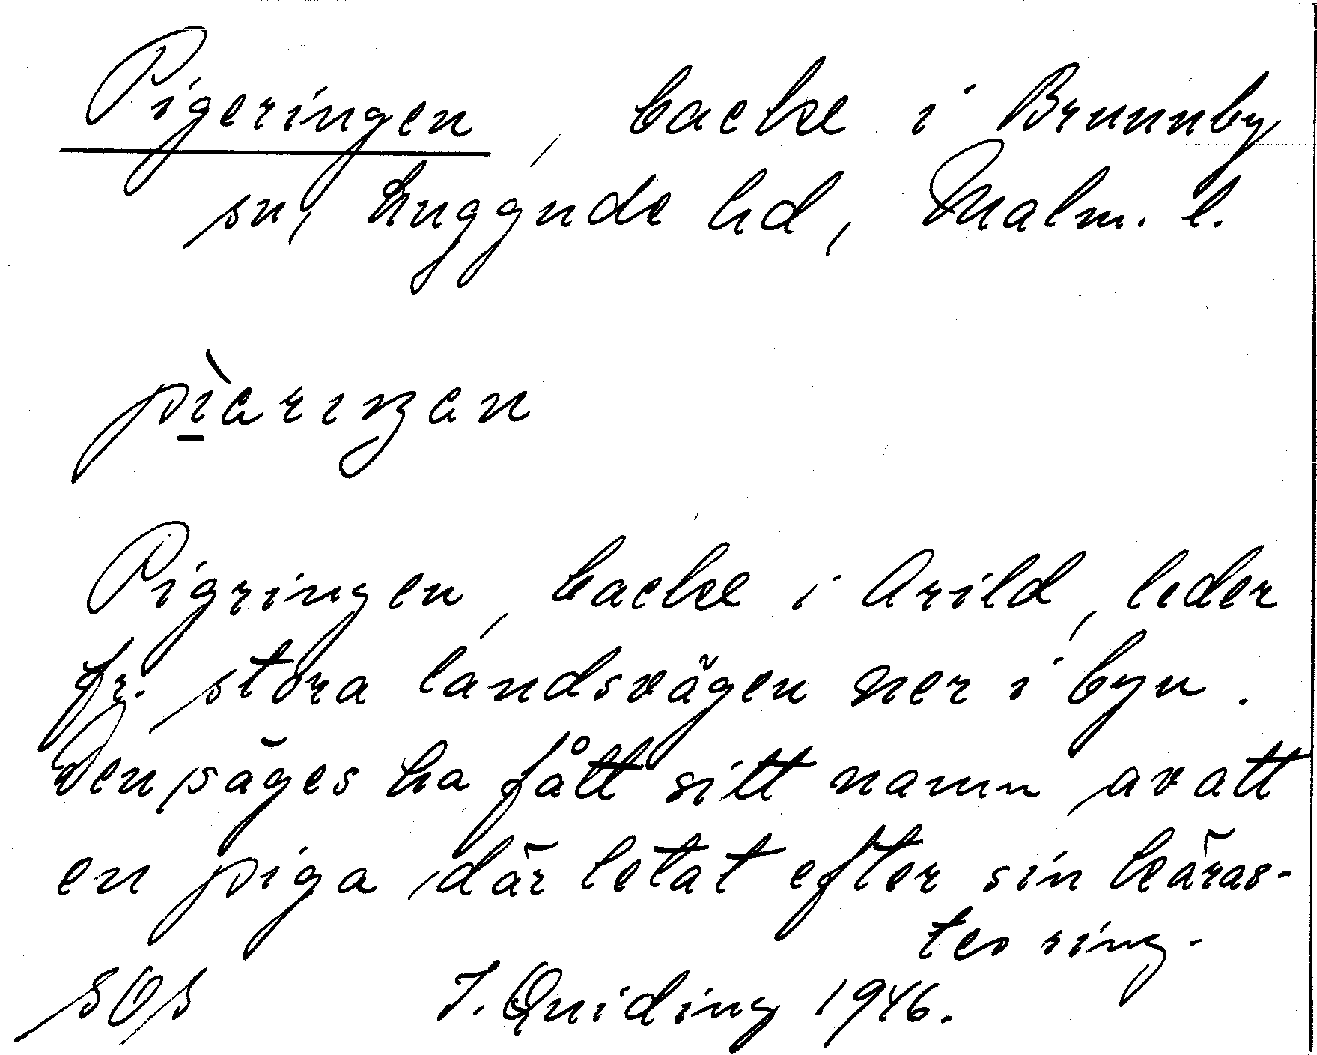 Pigeringen, backe i Brunnby
sn, Luggude hd, Malm. l.
pìariŋan
Pigringen, backe i Arild, leder
fr. stora landsvägen ner i byn.
Den säges ha fått sitt namn av att
en piga där letat efter sin käras-
tes ring.
SOS I. Quiding 1946.